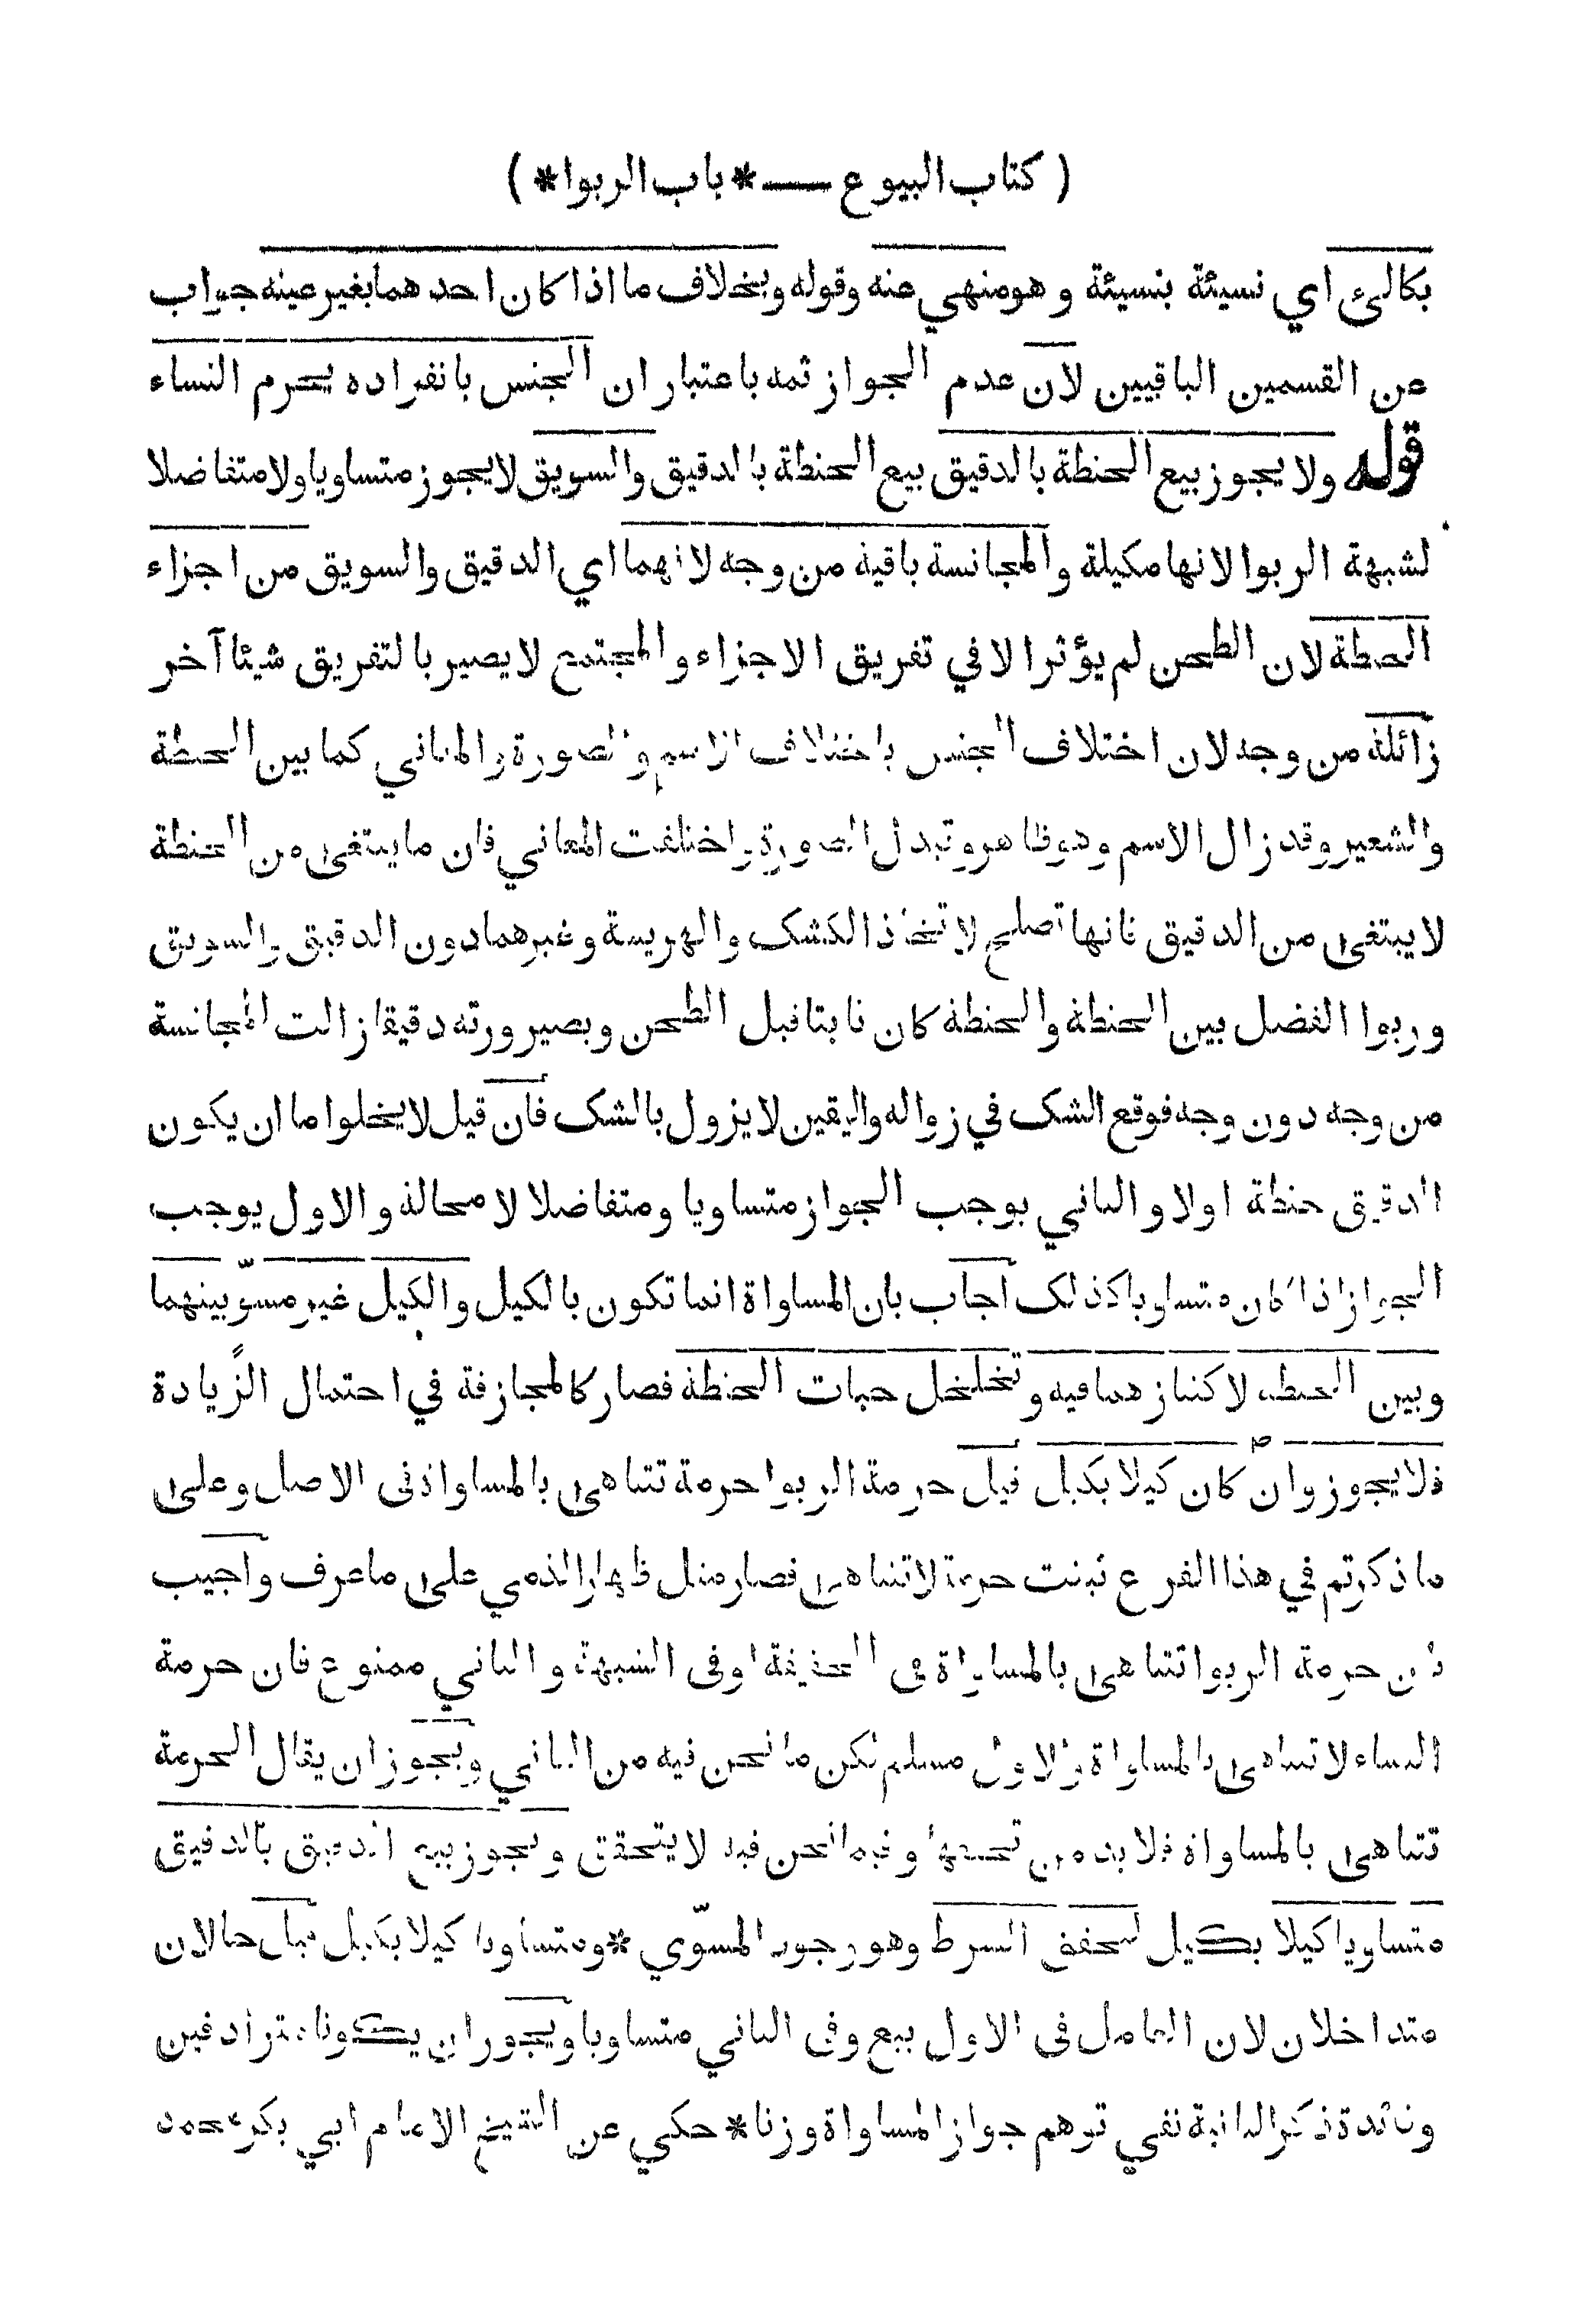 ( كتاب البيوع — * باب الربوا * )
بكالئ اي نسيئة بنسيئة وهو منهي عنه وقوله وبخلاف ما اذا كان احدهما بغير عينه جواب
عن القسمين الباقيين لان عدم الجواز ثمه باعتبار ان الجنس بانفراده يحرم النساء
قوله ولا يجوز بيع الحنطة بالدقيق بيع الحنطة بالدقيق والسويق لا يجوز متساويا ولا متفاضلا
لشبهة الربوا لانها مكيلة والمجانسة باقية من وجه لانهما اي الدقيق والسويق من اجزاء
الحنطة لان الطحن لم يؤثر الا في تفريق الاجزاء والمجتمع لا يصير بالتفريق شيئا آخر
زائلة من وجه لان اختلاف الجنس باختلاف الاسم والصورة والمعاني كما بين الحنطة
والشعير وقد زال الاسم وهو ظاهر وتبدل الصورة واختلفت المعاني فان ما يبتغى من الحنطة
لا يبتغى من الدقيق فانها تصلح لاتخاذ الكشك والهريسة وغيرهما دون الدقيق والسويق
وربوا الفضل بين الحنطة والحنطة كان ثابتا قبل الطحن وبصيرورته دقيقا زالت المجانسة
من وجه دون وجه فوقع الشك في زواله واليقين لا يزول بالشك فان قيل لا يخلوا ما ان يكون
الدقيق حنطة اولا والثاني يوجب الجواز متساويا ومتفاضلا لا محالة والاول يوجب
الجواز اذا كان متساويا كذلك اجاب بان المساواة انما تكون بالكيل والكيل غير مسوّ بينهما
وبين الحنطة لاكتنازهما فيه وتخلخل حبات الحنطة فصار كالمجازفة في احتمال الزّيادة
فلا يجوز وان كان كيلا بكيل قيل حرمة الربوا حرمة تتناهى بالمساواة فى الاصل وعلى
ما ذكرتم في هذا الفرع ثبتت حرمة لا تتناهى فصار مثل ظهار الذمي على ما عرف واجيب
بان حرمة الربوا تتناهى بالمساواة فى الحقيقة او فى الشبهة والثاني ممنوع فان حرمة
النساء لا تتناهى بالمساواة والاول مسلم لكن ما نحن فيه من الثاني ويجوز ان يقال الحرمة
تتناهى بالمساواة فلا بد من تحققها وفيما نحن فيه لا يتحقق ويجوز بيع الدقيق بالدقيق
متساويا كيلا بكيل لتحقق الشرط وهو وجود المسوّي * ومتساويا كيلا بكيل قيل حالان
متداخلان لان العامل فى الاول بيع وفى الثاني متساويا ويجوز ان يكونا مترادفين
وفائدة ذكر الثانية نفي توهم جواز المساواة وزنا * حكي عن الشيخ الامام ابي بكر محمد